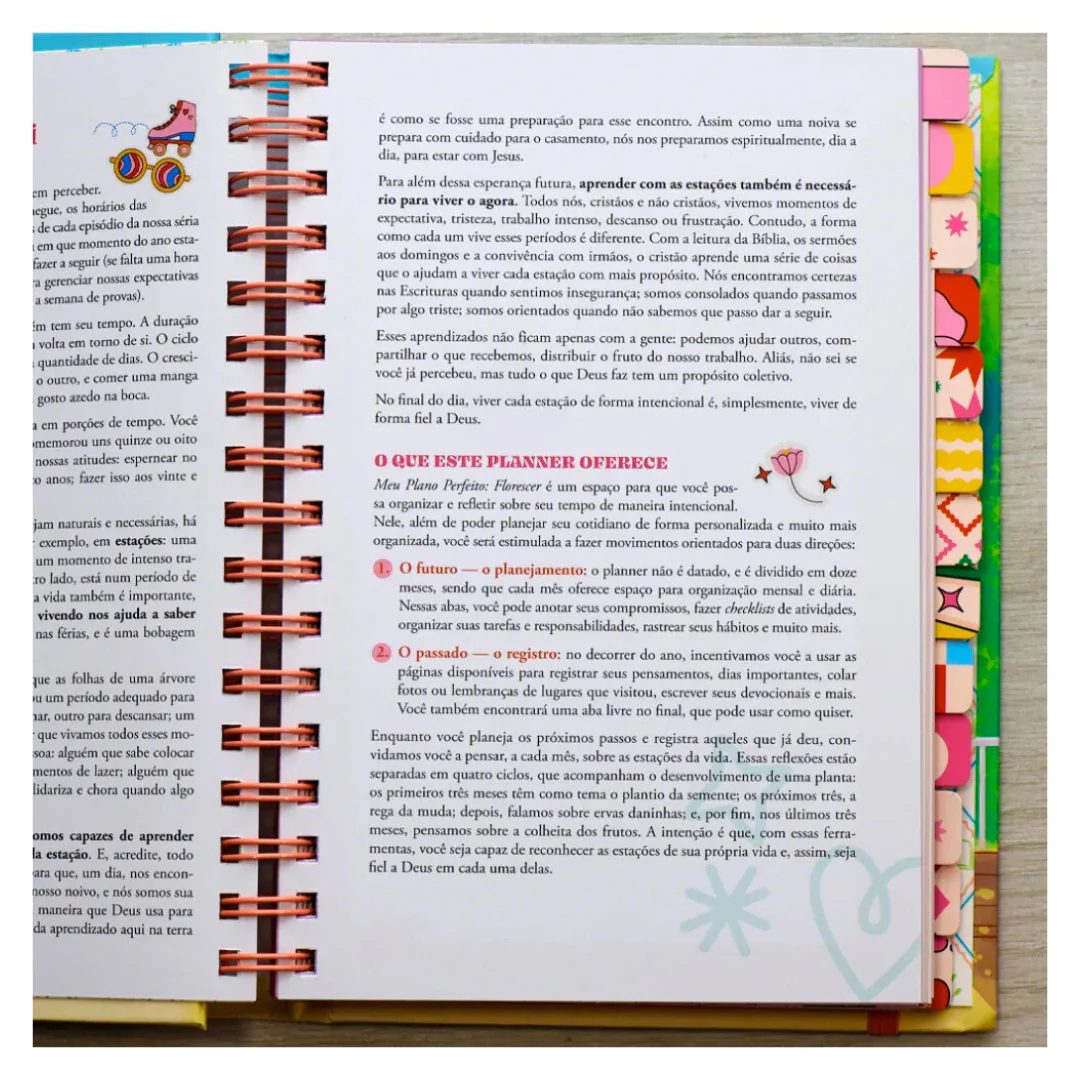 i
em perceber.
egue, os horários das
de cada episódio da nossa séria
em que momento do ano esta-
fazer a seguir (se falta uma hora
a gerenciar nossas expectativas
a semana de provas).
ém tem seu tempo. A duração
volta em torno de si. O ciclo
quantidade de dias. O cresci-
o outro, e comer uma manga
gosto azedo na boca.
a em porções de tempo. Você
omemorou uns quinze ou oito
nossas atitudes: espernear no
o anos; fazer isso aos vinte e
jam naturais e necessárias, há
exemplo, em estações: uma
um momento de intenso tra-
ro lado, está num período de
a vida também é importante,
vivendo nos ajuda a saber
nas férias, e é uma bobagem
que as folhas de uma árvore
ou um período adequado para
nar, outro para descansar; um
que vivamos todos esses mo-
soa: alguém que sabe colocar
mentos de lazer; alguém que
lidariza e chora quando algo
omos capazes de aprender
la estação. E, acredite, todo
para que, um dia, nos encon-
nosso noivo, e nós somos sua
maneira que Deus usa para
da aprendizado aqui na terra
é como se fosse uma preparação para esse encontro. Assim como uma noiva se
prepara com cuidado para o casamento, nós nos preparamos espiritualmente, dia a
dia, para estar com Jesus.
Para além dessa esperança futura, aprender com as estações também é necessá-
rio para viver o agora. Todos nós, cristãos e não cristãos, vivemos momentos de
expectativa, tristeza, trabalho intenso, descanso ou frustração. Contudo, a forma
como cada um vive esses períodos é diferente. Com a leitura da Bíblia, os sermões
aos domingos e a convivência com irmãos, o cristão aprende uma série de coisas
que o ajudam a viver cada estação com mais propósito. Nós encontramos certezas
nas Escrituras quando sentimos insegurança; somos consolados quando passamos
por algo triste; somos orientados quando não sabemos que passo dar a seguir.
Esses aprendizados não ficam apenas com a gente: podemos ajudar outros, com-
partilhar o que recebemos, distribuir o fruto do nosso trabalho. Aliás, não sei se
você já percebeu, mas tudo o que Deus faz tem um propósito coletivo.
No final do dia, viver cada estação de forma intencional é, simplesmente, viver de
forma fiel a Deus.
O QUE ESTE PLANNER OFERECE
Meu Plano Perfeito: Florescer é um espaço para que você pos-
sa organizar e refletir sobre seu tempo de maneira intencional.
Nele, além de poder planejar seu cotidiano de forma personalizada e muito mais
organizada, você será estimulada a fazer movimentos orientados para duas direções:
1. O futuro — o planejamento: o planner não é datado, e é dividido em doze
meses, sendo que cada mês oferece espaço para organização mensal e diária.
Nessas abas, você pode anotar seus compromissos, fazer checklists de atividades,
organizar suas tarefas e responsabilidades, rastrear seus hábitos e muito mais.
2. O passado — o registro: no decorrer do ano, incentivamos você a usar as
páginas disponíveis para registrar seus pensamentos, dias importantes, colar
fotos ou lembranças de lugares que visitou, escrever seus devocionais e mais.
Você também encontrará uma aba livre no final, que pode usar como quiser.
Enquanto você planeja os próximos passos e registra aqueles que já deu, con-
vidamos você a pensar, a cada mês, sobre as estações da vida. Essas reflexões estão
separadas em quatro ciclos, que acompanham o desenvolvimento de uma planta:
os primeiros três meses têm como tema o plantio da semente; os próximos três, a
rega da muda; depois, falamos sobre ervas daninhas; e, por fim, nos últimos três
meses, pensamos sobre a colheita dos frutos. A intenção é que, com essas ferra-
mentas, você seja capaz de reconhecer as estações de sua própria vida e, assim, seja
fiel a Deus em cada uma delas.